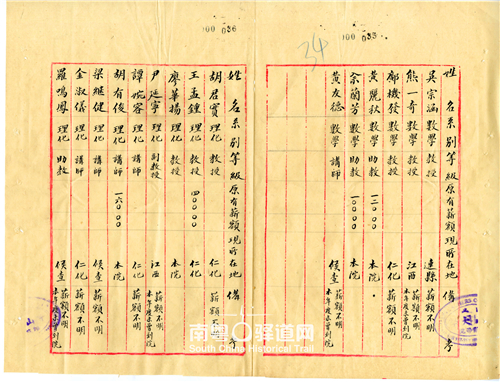 姓名 系別 等級 原有薪額 現所在地 備考
吳宗涵 數學 教授 連縣
熊一奇 數學 教授 江西 薪額不明 本年度未曾到院
鄺機發 數學 助教 仁化 薪額不明
黃麗秋 數學 助教 一二〇〇〇 本院
余蘭芳 數學 助教 一〇〇〇〇 本院
黃友德 數學 講師 候查 薪額不明 本年度未曾到院
34
00 033
姓名 系別 等級 原有薪額 現所在地 備考
胡君實 理化 教授 仁化 薪額不明
王孟鍾 理化 教授 四〇〇〇〇 仁化
廖華揚 理化 教授 本院
尹廷寧 理化 副教授 江西 薪額不明 本年度未曾到院
譚婉容 理化 講師 仁化 薪額不明
胡有俊 理化 講師 一六〇〇〇 本院
梁繼健 理化 講師 候查 薪額不明
金淑儀 理化 講師 仁化 薪額不明
羅鳴鳳 理化 助教 候查 薪額不明 本年度未曾到院
00 036
南粤 驿道网
South China Historical Trail